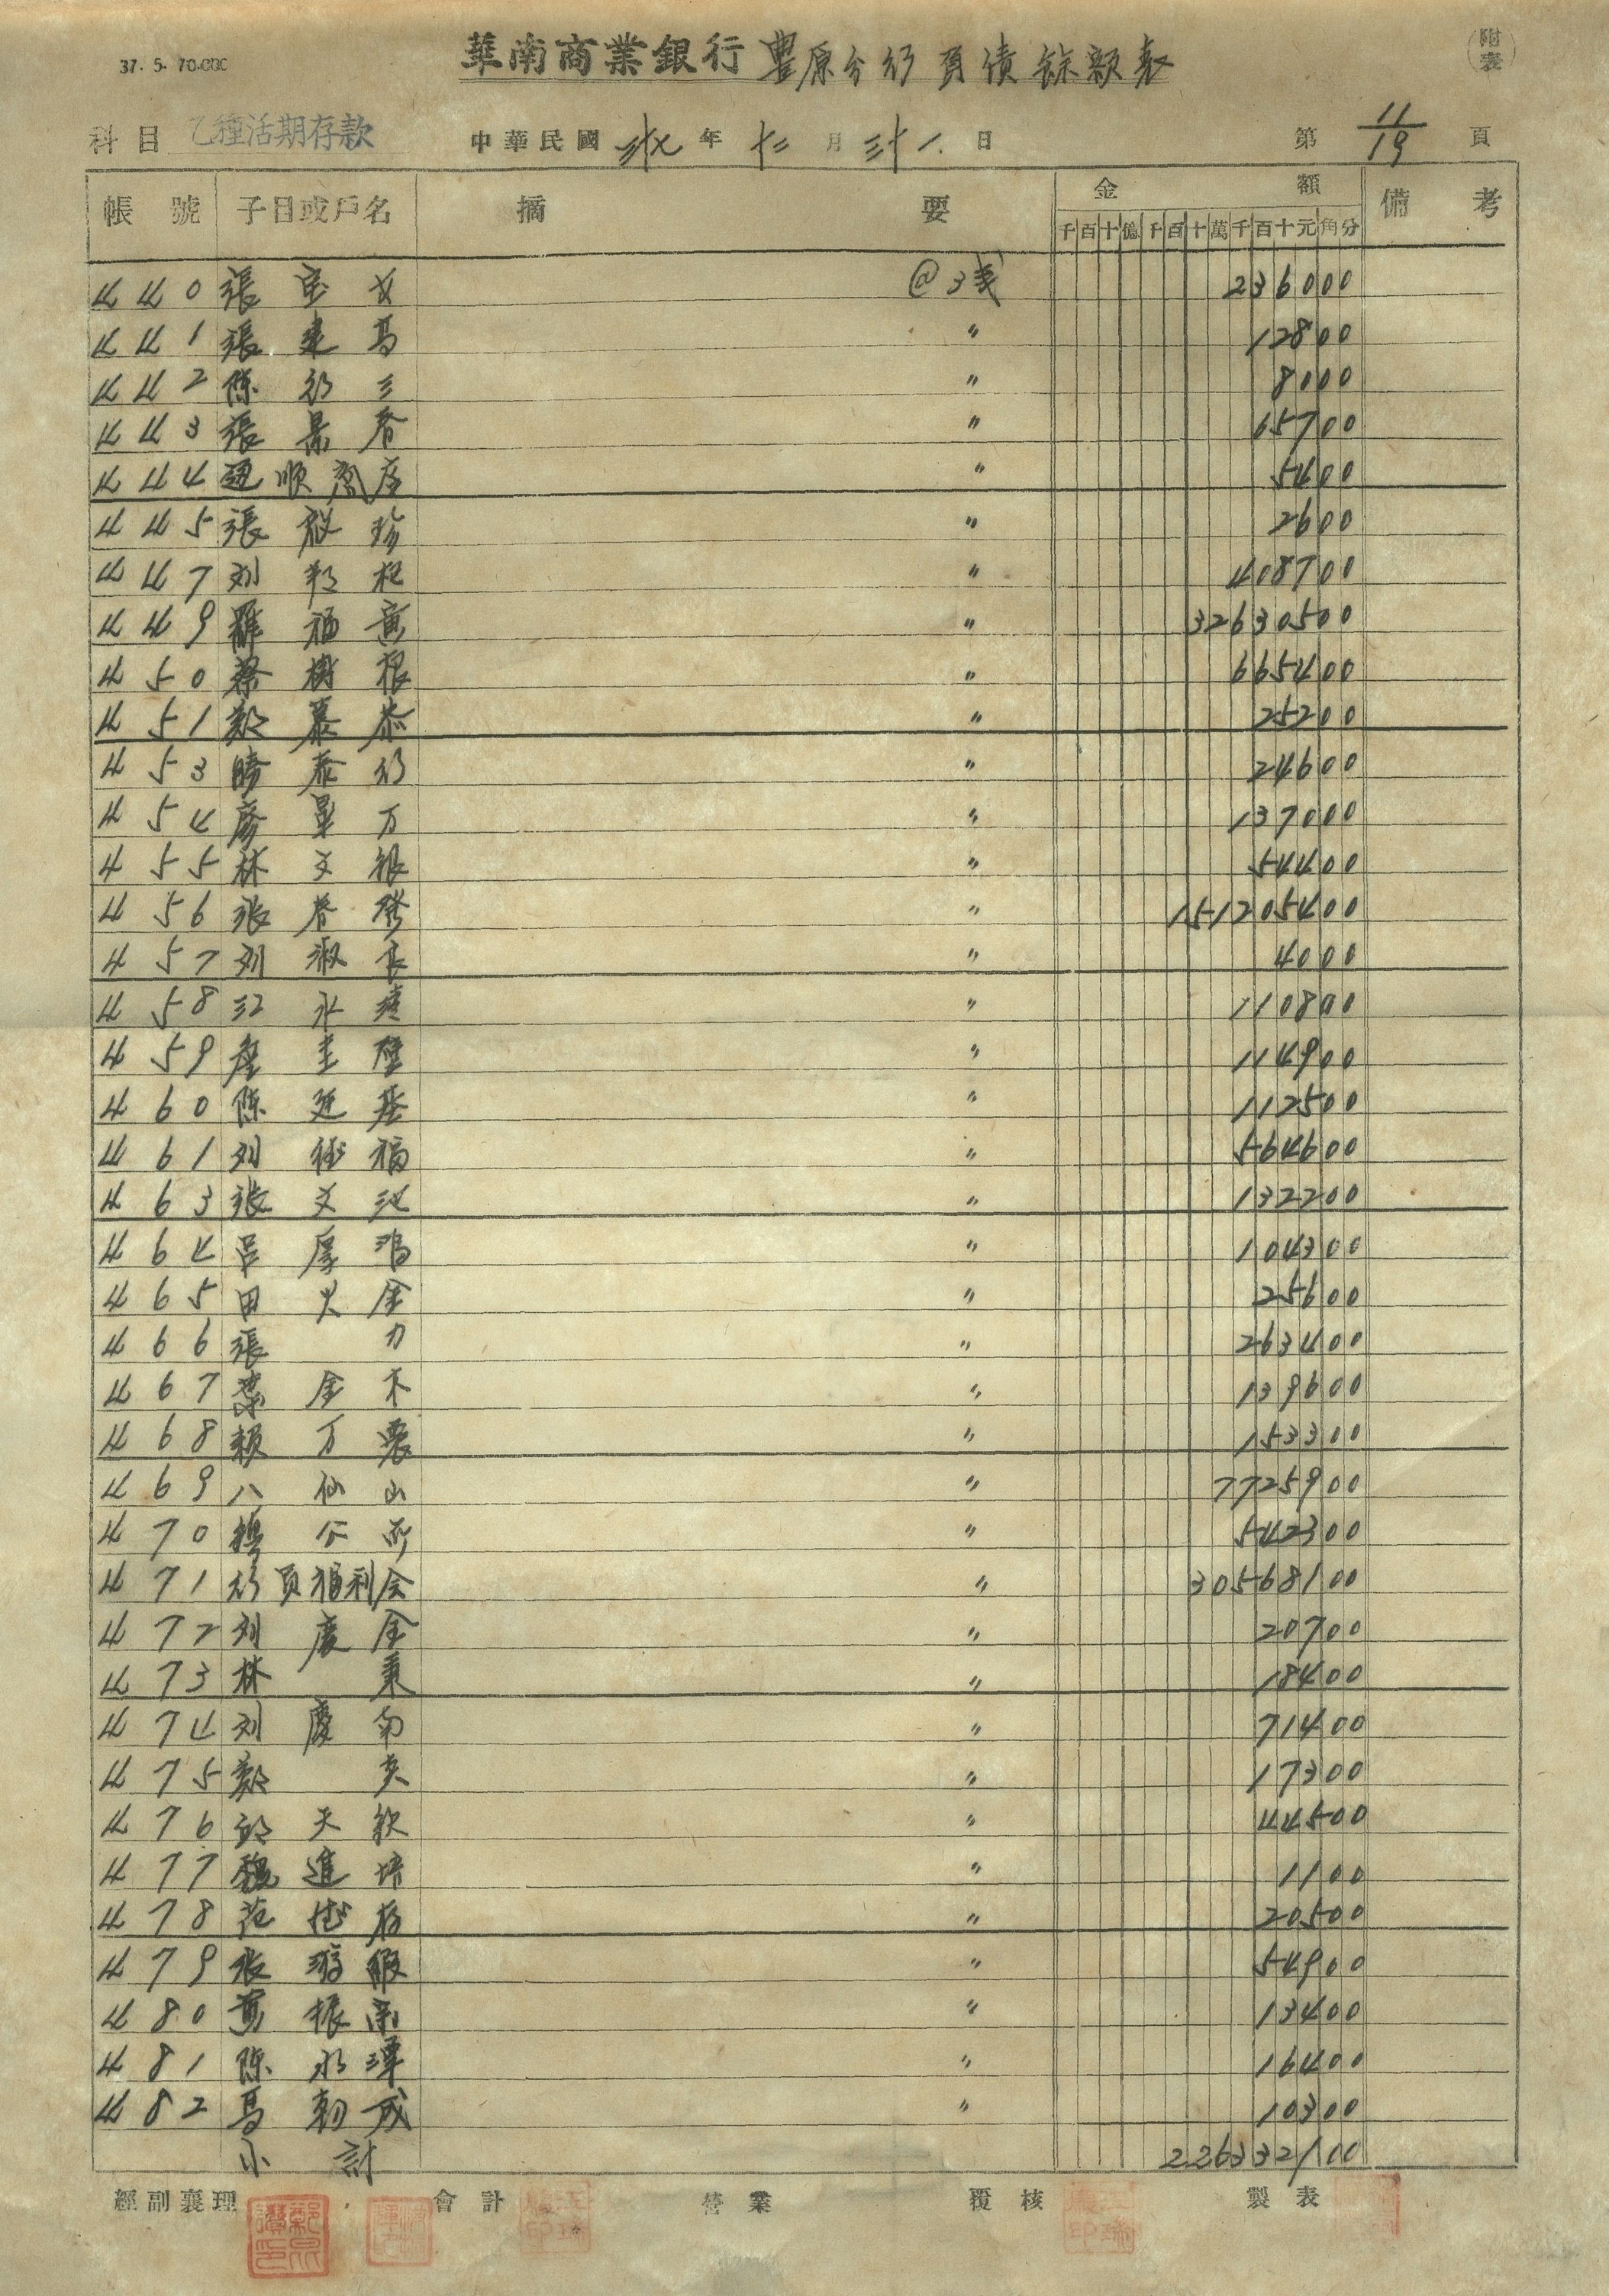 37. 5. 70.000
華南商業銀行 豐原分行負債餘額表
附表
科目 乙種活期存款 中華民國 卅七 年 十二 月 三十一 日 第 11/19 頁
帳號 子目或戶名 摘要 金額 備考
千百十億千百十萬千百十元角分
440 張宝女 @3 236000
441 張建高 〃 12800
442 陳行三 〃 8000
443 張景春 〃 65700
444 順商店 〃 5400
445 張淑珍 〃 2600
447 刘 〃 408700
449 羅福 〃 32630500
450 蔡樹根 〃 665400
451 鄭慕恭 〃 25200
453 勝泰行 〃 24600
454 廖万 〃 137000
455 林文銀 〃 54400
456 張春發 〃 151205400
457 刘淑良 〃 4000
458 江永 〃 110800
459 圭璧 〃 114900
460 陳廷基 〃 112500
461 刘德福 〃 564600
463 張文池 〃 132200
464 呂厚 〃 104300
465 田火金 〃 25600
466 張力 〃 263400
467 葉金木 〃 139600
468 賴万 〃 153300
469 八仙山 〃 7725900
470 公所 〃 542300
471 行員福利会 〃 30568100
472 刘慶金 〃 20700
473 林秉 〃 18400
474 刘慶南 〃 71400
475 鄭 〃 17300
476 天欽 〃 44500
477 魏進培 〃 1100
478 范德 〃 20500
479 張 〃 54900
480 黃振 〃 13400
481 陳水潭 〃 16400
482 馬朝成 〃 10300
小計 226332100
經副襄理 會計 營業 覆核 製表